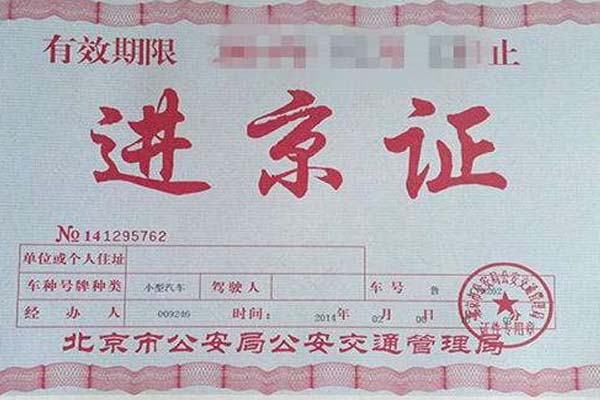 有效期限 止
进京证
№ 141295762
单位或个人住址
车种号牌种类 小型汽车 驾驶人 车号 鲁
经办人 009246 时间: 2014年 02月 08 分
北京市公安局公安交通管理局
北京市公安局公安交通管理局
证件专用章